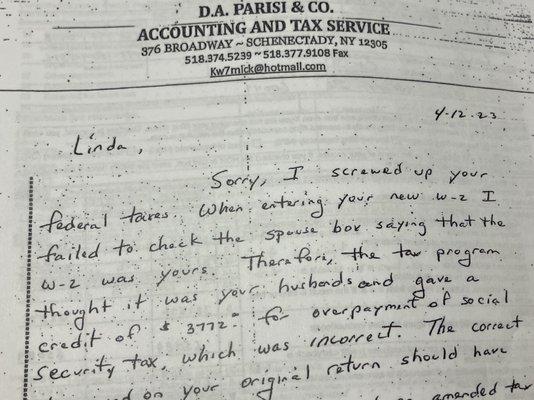 D.A. PARISI & CO.
ACCOUNTING AND TAX SERVICE
376 BROADWAY ~ SCHENECTADY, NY 12305
518.374.5239 ~ 518.377.9108 Fax
Kw7mick@hotmail.com
4-12-23
Linda,
Sorry, I screwed up your
federal taxes. When entering your new w-2 I
failed to check the spouse box saying that the
w-2 was yours. Therefore, the tax program
thought it was your husbands and gave a
credit of $ 3772.00 for overpayment of social
security tax, which was incorrect. The correct
on your original return should have
amended tax